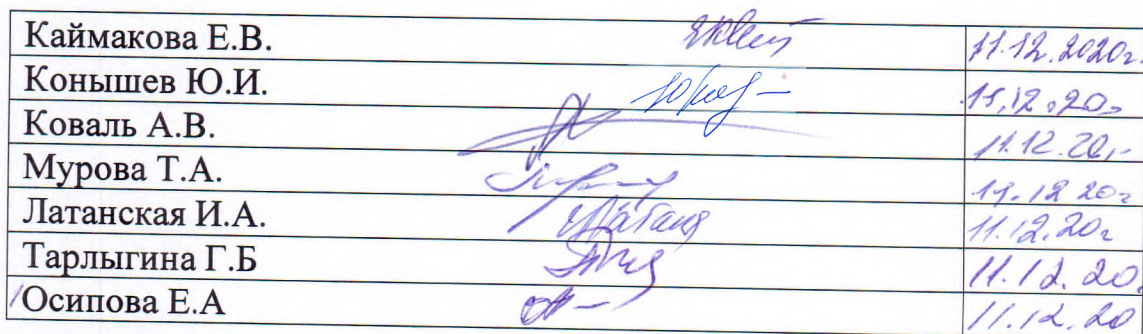 Каймакова Е.В. 11.12.2020г.
Конышев Ю.И. 11.12.20г
Коваль А.В. 11.12.20г
Мурова Т.А. 11.12 20г
Латанская И.А. 11.12.20г
Тарлыгина Г.Б 11.12.20г
Осипова Е.А 11.12.20